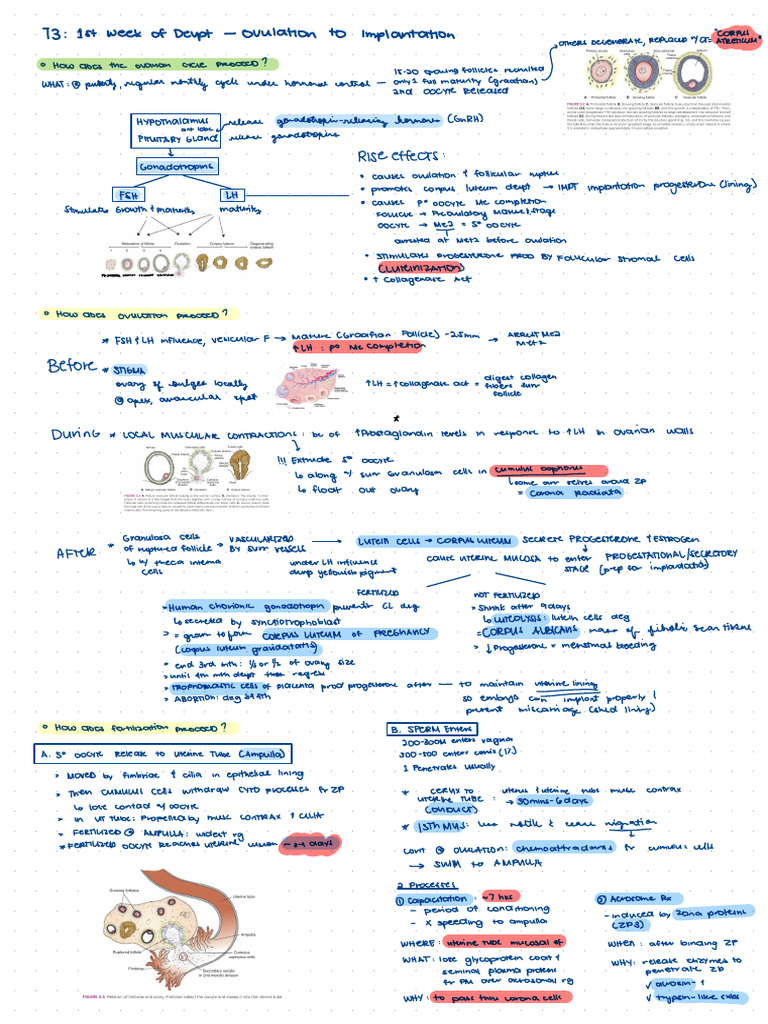 T3: 1st Week of Devpt – Ovulation to Implantation
• How does the ovarian cycle proceed?
WHAT: @ puberty, regular monthly cycle under hormonal control
15-20 growing follicles recruited
only 1 full maturity (graafian)
2nd OOCYTE RELEASED
OTHERS DEGENERATE, REPLACED W/ CT = "CORPUS ATRETICUM"
HYPOTHALAMUS → release gonadotropin-releasing hormone (GnRH)
ant lobe
PITUITARY GLAND → release gonadotropins
Gonadotropins
FSH
LH
Stimulate growth & maturity
maturity
Maturation of follicle
Ovulation
Corpus luteum
Degenerating corpus luteum
1 2 3 4
Rise effects:
• causes ovulation & follicular rupture
• promotes corpus luteum devpt → IMPT implantation progesterone (lining)
• causes 1° oocyte Me completion
Follicle → Preovulatory mature stage
oocyte → Me2 = 2° oocyte
arrested at Met2 before ovulation
• stimulates progesterone prod by follicular stromal cells
(LUTEINIZATION)
• ↑ Collagenase Act
• How does ovulation proceed?
* FSH & LH influence, vesicular F → Mature (Graafian Follicle) ~25mm → ARREST Me2 Met2
↑LH: 1° Me completion
Before
* STIGMA
ovary sf bulges locally
@ apex, avascular spot
↑LH = ↑collagenase act = digest collagen fibers surr follicle
*
DURING * LOCAL MUSCULAR CONTRACTIONS: bc of ↑Prostaglandin levels in response to ↑LH in ovarian walls
!!! Extrude 2° oocyte
↳ along w/ surr granulosa cells in cumulus oophorus
↳ some arr selves around ZP
= corona radiata
↳ float out ovary
AFTER
* Granulosa cells of ruptured follicle → VASCULARIZED BY surr vessels → LUTEIN CELLS → CORPUS LUTEUM SECRETE PROGESTERONE & ESTROGEN
↳ w/ theca interna cells
under LH influence
devp yellowish pigment
cause uterine MUCOSA to enter PROGESTATIONAL/SECRETORY STAGE (prep for implantation)
FERTILIZED
> Human chorionic gonadotropin prevents CL deg
↳ secreted by syncytiotrophoblast
> = grow to form CORPUS LUTEUM OF PREGNANCY
(corpus luteum graviditatis)
> end 3rd mth: 1/3 or 1/2 of ovary size
> until 4th mth devpt then regress
> TROPHOBLASTIC CELLS of placenta prod progesterone after — to maintain uterine lining
so embryo can implant properly & prevent miscarriage (shed lining)
> ABORTION: deg b4 4th
NOT FERTILIZED
> Shrink after 9 days
↳ LUTEOLYSIS: lutein cells deg
= CORPUS ALBICANS: mass of fibrotic scar tissue
> ↓Progesterone = menstrual bleeding
• How does fertilization proceed?
A. 2° OOCYTE RELEASE TO UTERINE TUBE (Ampulla)
> MOVED by fimbriae & cilia in epithelial lining
> Then CUMULUS CELLS withdraw CYTO processes fr ZP
↳ lose contact w/ oocyte
> in UT TUBE: Propelled by musc contrax & CILIA
> FERTILIZED @ AMPULLA: widest rg
* FERTILIZED OOCYTE REACHES UTERINE lumen ~3-4 days
Growing follicles
Uterine tube
Ampulla
Cumulus oophorus cells
Ruptured follicle
Fimbriae
Secondary oocyte in 2nd meiotic division
FIGURE 3.5 Relation of fimbriae and ovary. Fimbriae collect the oocyte and sweep it into the uterine tube.
B. SPERM Enters
200-300M enters vagina
300-500 enters cervix (1%)
1 Penetrates usually
* CERVIX to UTERINE TUBE: uterus & uterine tube musc contrax
(CONDUCT) → 30mins-6days
* ISTHMUS: less motile & cease migration
cont @ OVULATION: chemoattractants fr cumulus cells
→ SWIM to AMPULLA
2 Processes
① Capacitation: ~7 hrs
– period of conditioning
– X speeding to ampulla
WHERE: uterine tube mucosal sf
WHAT: lose glycoprotein coat & seminal plasma proteins fr PM over acrosomal rg
WHY: to pass thru corona cells
② Acrosome Rx
– induced by zona proteins (ZP3)
WHEN: after binding ZP
WHY: release enzymes to penetrate ZP
✓ acrosin &
✓ trypsin-like subs